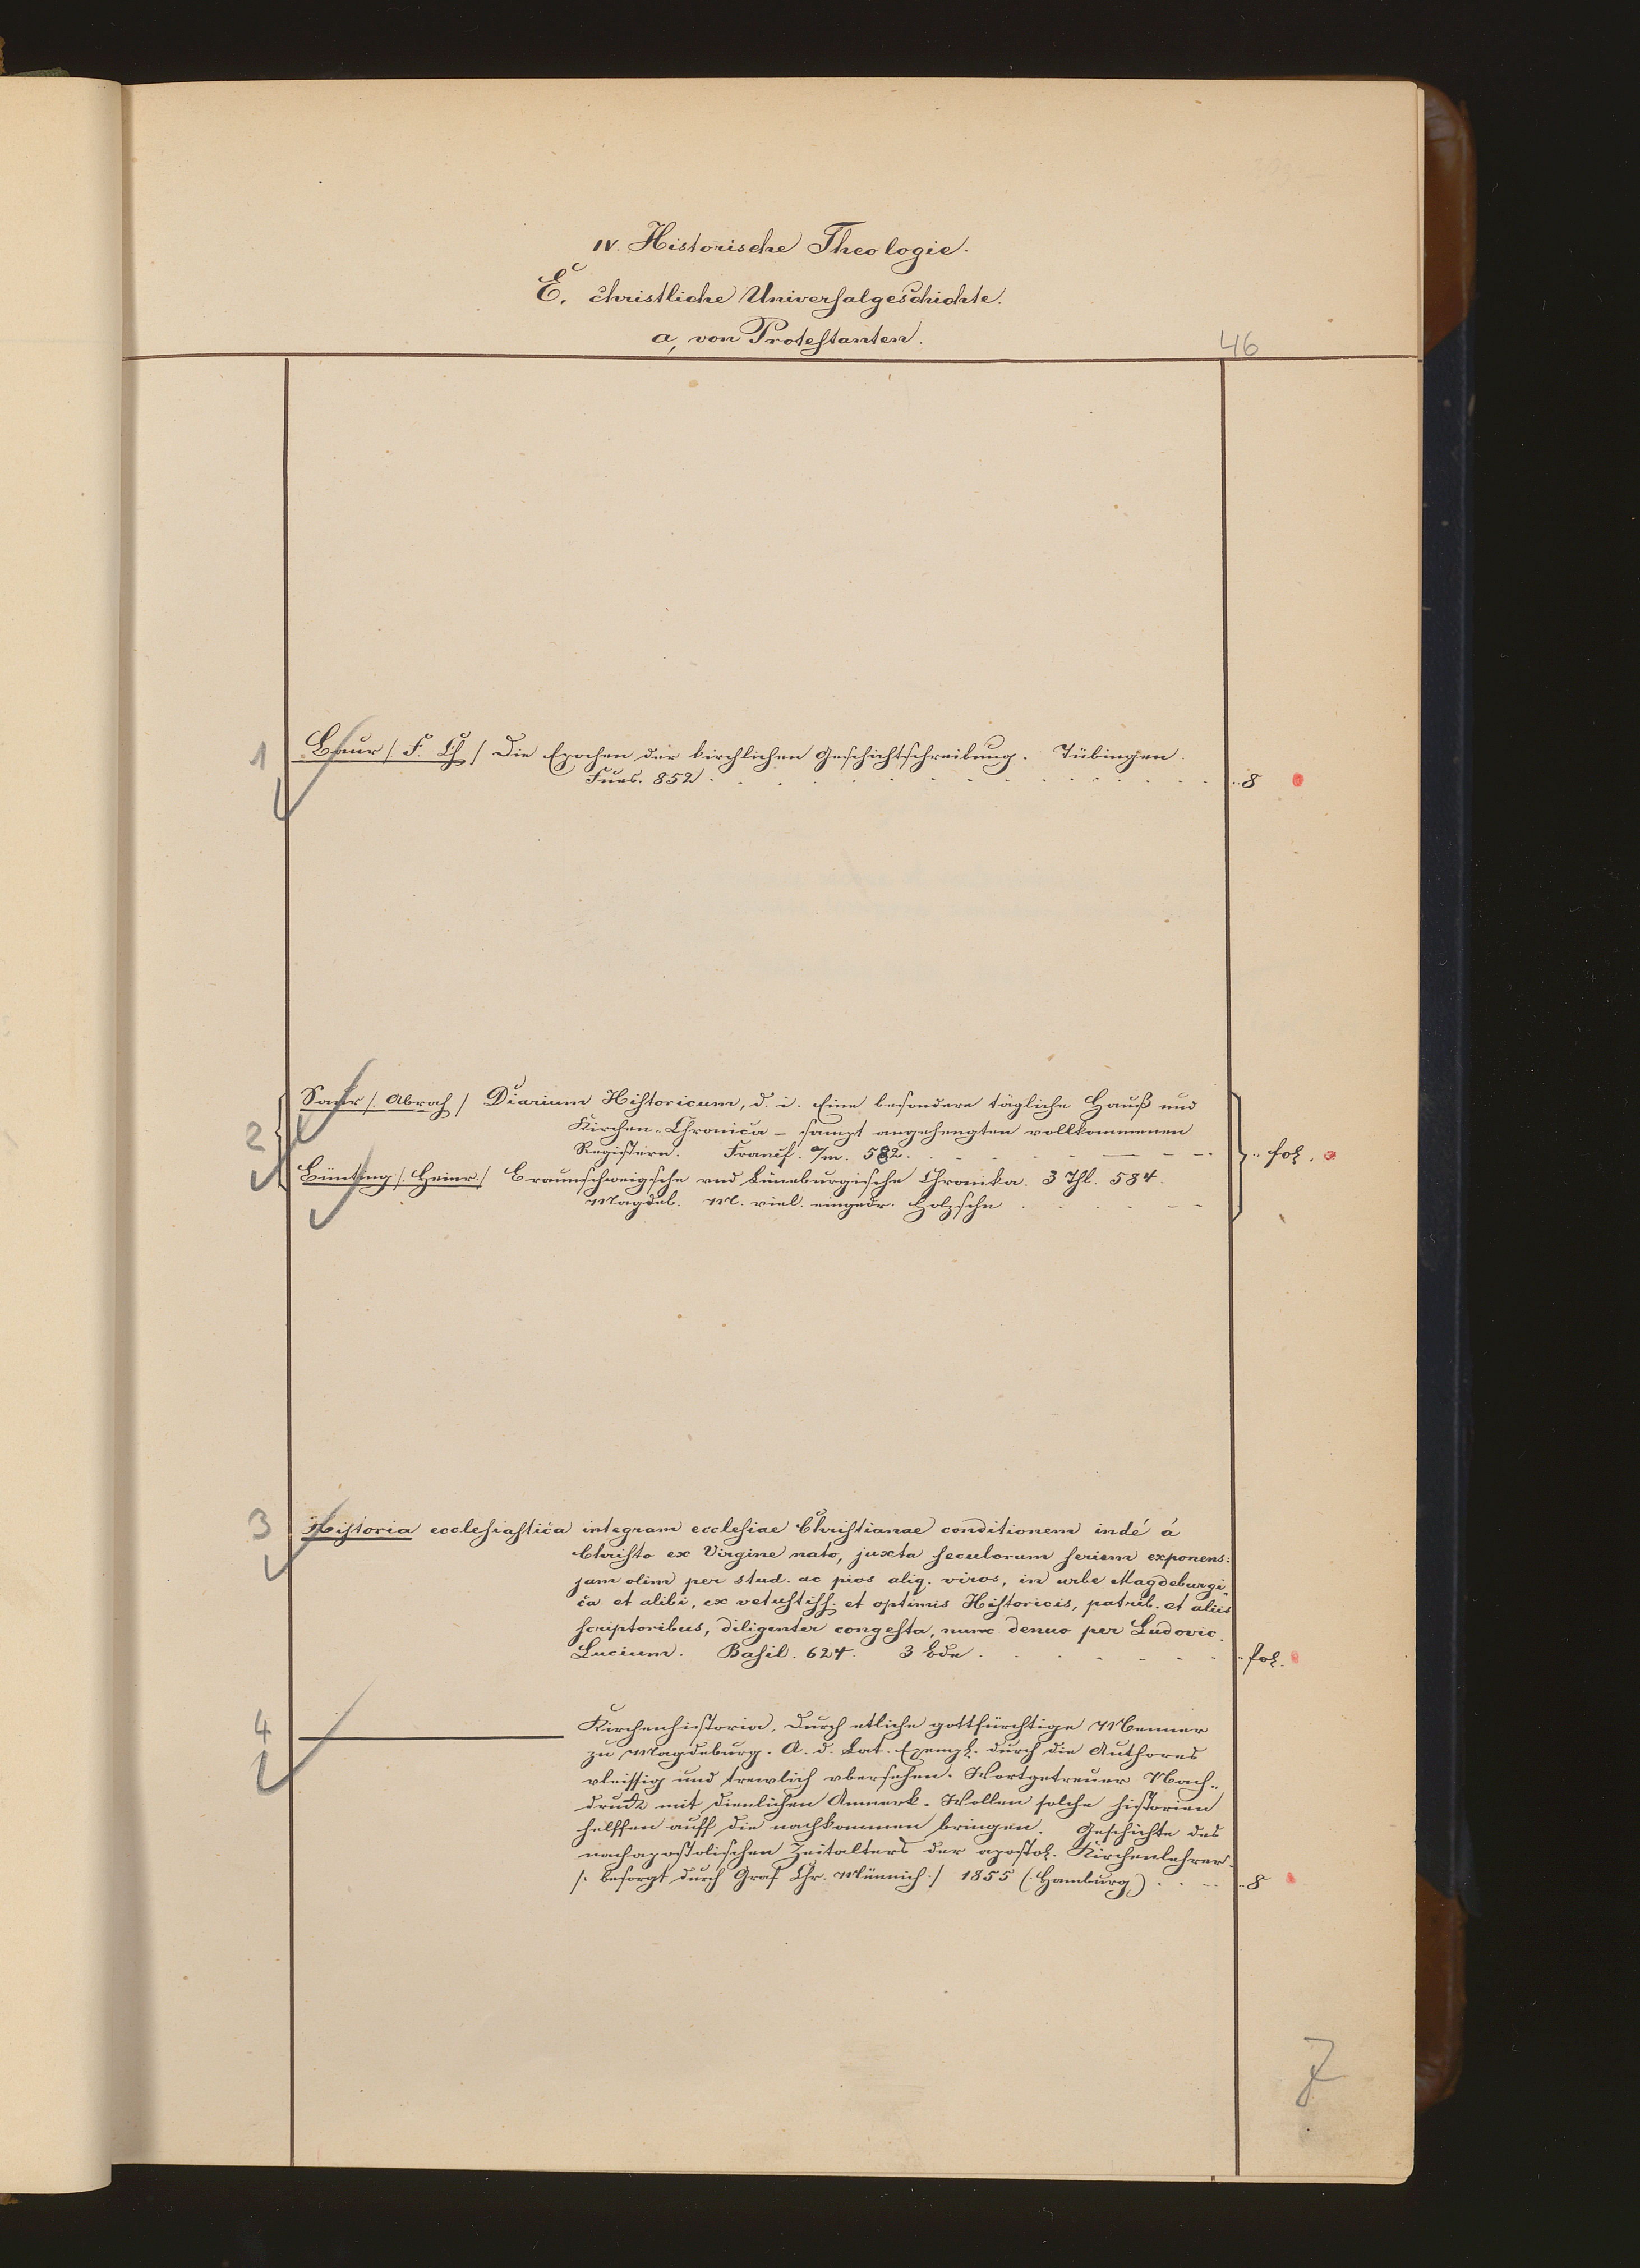 IV. Historische Theologie.
E. christliche Universalgeschichte.
a, von Protestanten.
46
1 Baur /F. Ch/ Die Epochen der kirchlichen Geschichtschreibung. Tübingen.
Fues. 852 . . . . . . . . . . . . . . 8
Saur /: Abrah / Diarium Historicum, d. i. Eine besondere tägliche Hauß und
2 Kirchen-Chronica – sampt angehengten vollkommenen
Registern. Francf. a/m. 582. - - - - - fol.
Bünting /: Heinr:/ Braunschweigsche und Lüneburgische Chronika. 3 Thl. 584.
Magdeb. M. viel. eingedr. Holzschn . . . . - -
3 Historia ecclesiastica integram ecclesiae Christianae conditionem indé á
Christo ex Virgine nato, juxta seculorum seriem exponens:
jam olim per stud. ac pios aliq. viros, in urbe Magdeburgi-
ca et alibi, ex vetustiss. et optimis Historicis, patrib. et aliis
scriptoribus, diligenter congesta, nunc denuo per Ludovic.
Lucium. Basil. 624. 3 Bde . . - - - - - fol.
4 ——— Kirchenhistoria, durch etliche gottfürchtige Menner
zu Magdeburg. A. d. Lat. Exempl. durch die Authores
vleissig und trewlich vbersehen. Wortgetreuer Nach-
druck mit dienlichen Anmerk. Wollen solche historien
helffen auff die nachkommen bringen. Geschichte des
nachapostolischen Zeitalters der apostol. Kirchenlehrer.
/: besorgt durch Graf Chr. Münnich:/ 1855 (Hamburg) . . - - 8
7